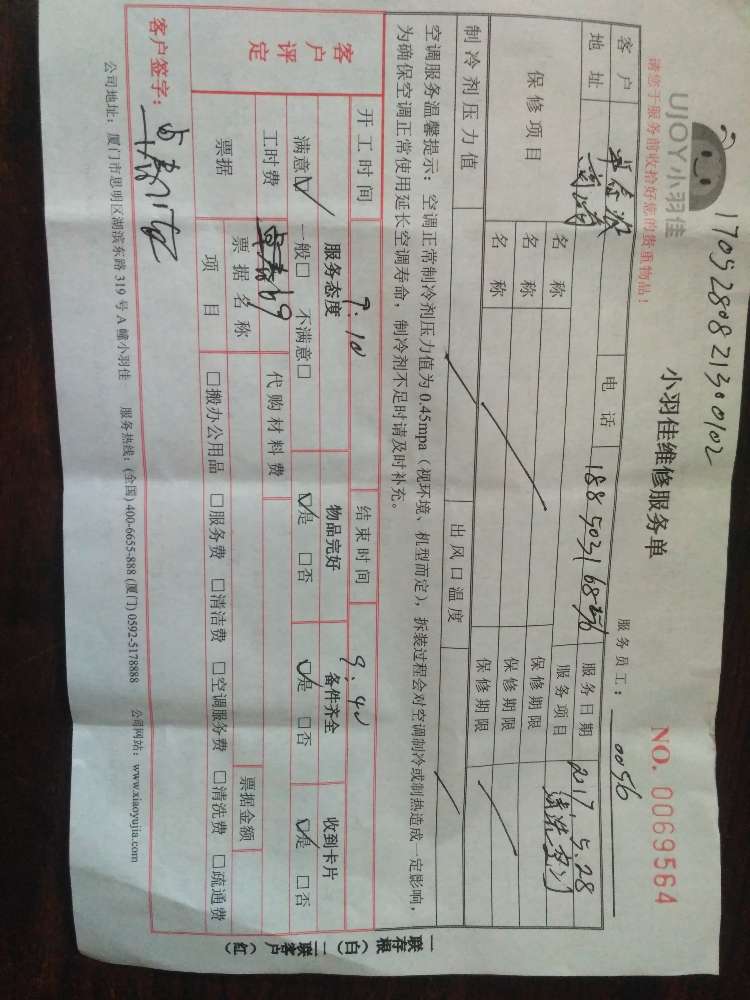 1705280821300102
UJOY小羽佳
小羽佳维修服务单
NO. 0069564
请您于服务前收拾好您的贵重物品！
服务员工： 0056
客户
地址
电话
服务日期 2017.5.28
服务项目
保修项目
名称 保修期限
名称 保修期限
名称 保修期限
制冷剂压力值 出风口温度
空调服务温馨提示：空调正常制冷剂压力值为 0.45mpa（视环境、机型而定），拆装过程会对空调制冷或制热造成一定影响，
为确保空调正常使用延长空调寿命，制冷剂不足时请及时补充。
客户评定
开工时间 9:10 结束时间 9:40
服务态度 物品完好 备件齐全 收到卡片
满意☑ 一般□ 不满意□ ☑是 □否 ☑是 □否 ☑是 □否
工时费 代购材料费
票据 票据名称 票据金额
项目 □搬办公用品 □服务费 □清洁费 □空调服务费 □清洗费 □疏通费
客户签字：
公司地址：厦门市思明区湖滨东路 319 号 A 幢小羽佳 服务热线：(全国) 400-6655-888 (厦门) 0592-5178888 公司网站：www.xiaoyujia.com
一联存根（白） 二联客户（红）